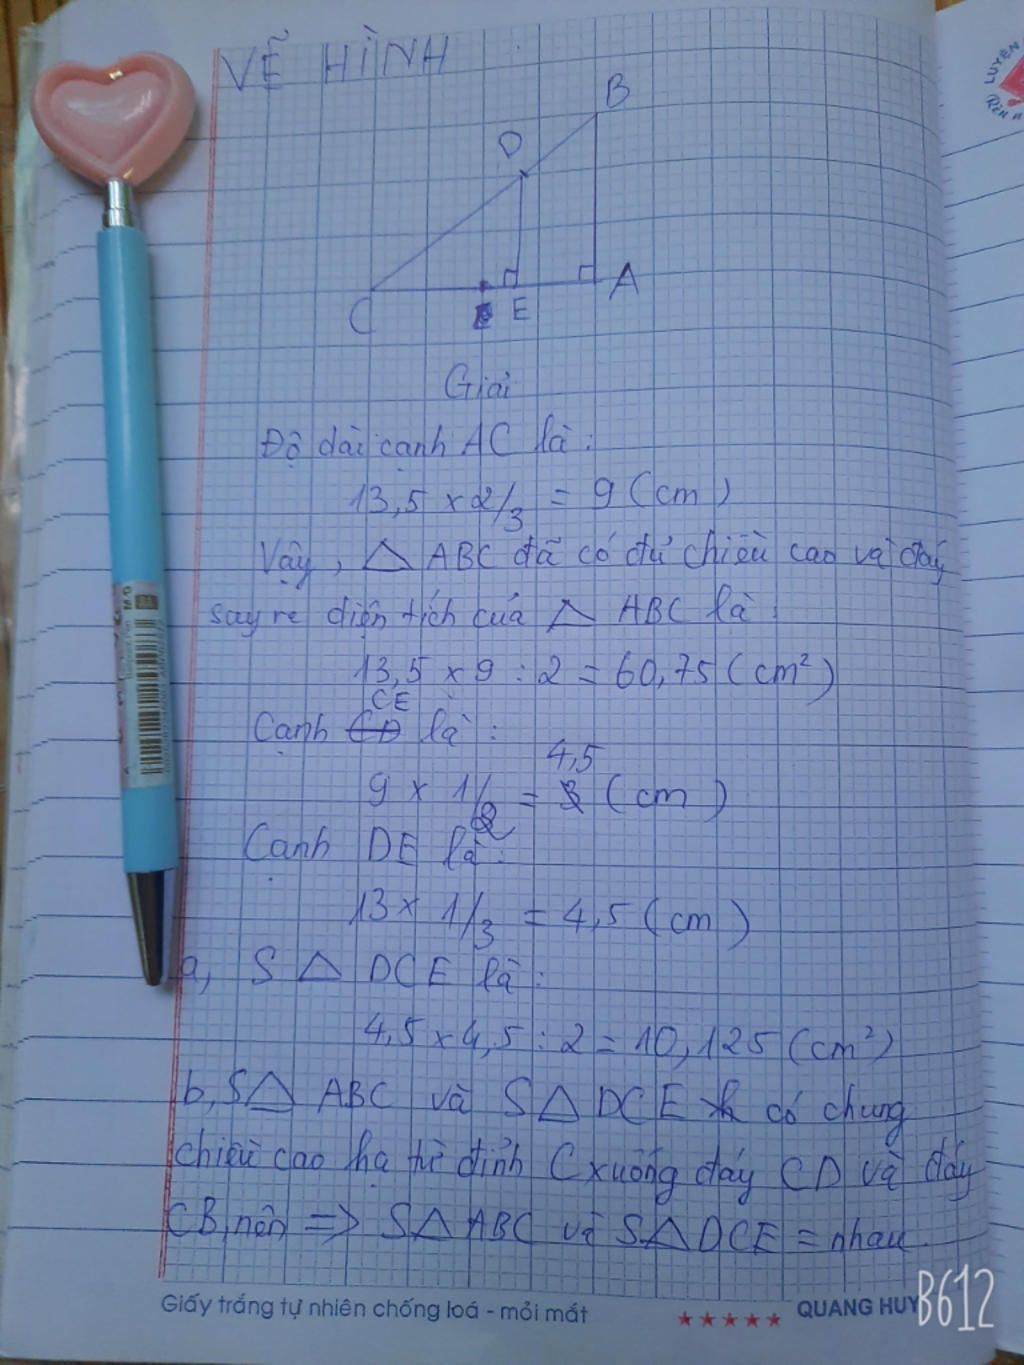 VẼ HÌNH
B
D
A
C
E
Giải
Độ dài cạnh AC là:
13,5 x 2/3 = 9 (cm)
Vậy, △ ABC đã có đủ chiều cao và đáy
suy re diện tích của △ ABC là:
13,5 x 9 : 2 = 60,75 (cm²)
CE
Cạnh CD là:
4,5
9 x 1/2 = 3 (cm)
Cạnh DE là:
13 x 1/3 = 4,5 (cm)
a, S △ DCE là:
4,5 x 4,5 : 2 = 10,125 (cm²)
b, S△ ABC và S△ DCE có chung
chiều cao hạ từ đỉnh C xuống đáy CD và đáy
CB, nên => S△ ABC và S△ DCE = nhau.
Giấy trắng tự nhiên chống loá - mỏi mắt
QUANG HUY
B612
LUYỆN
RÈN